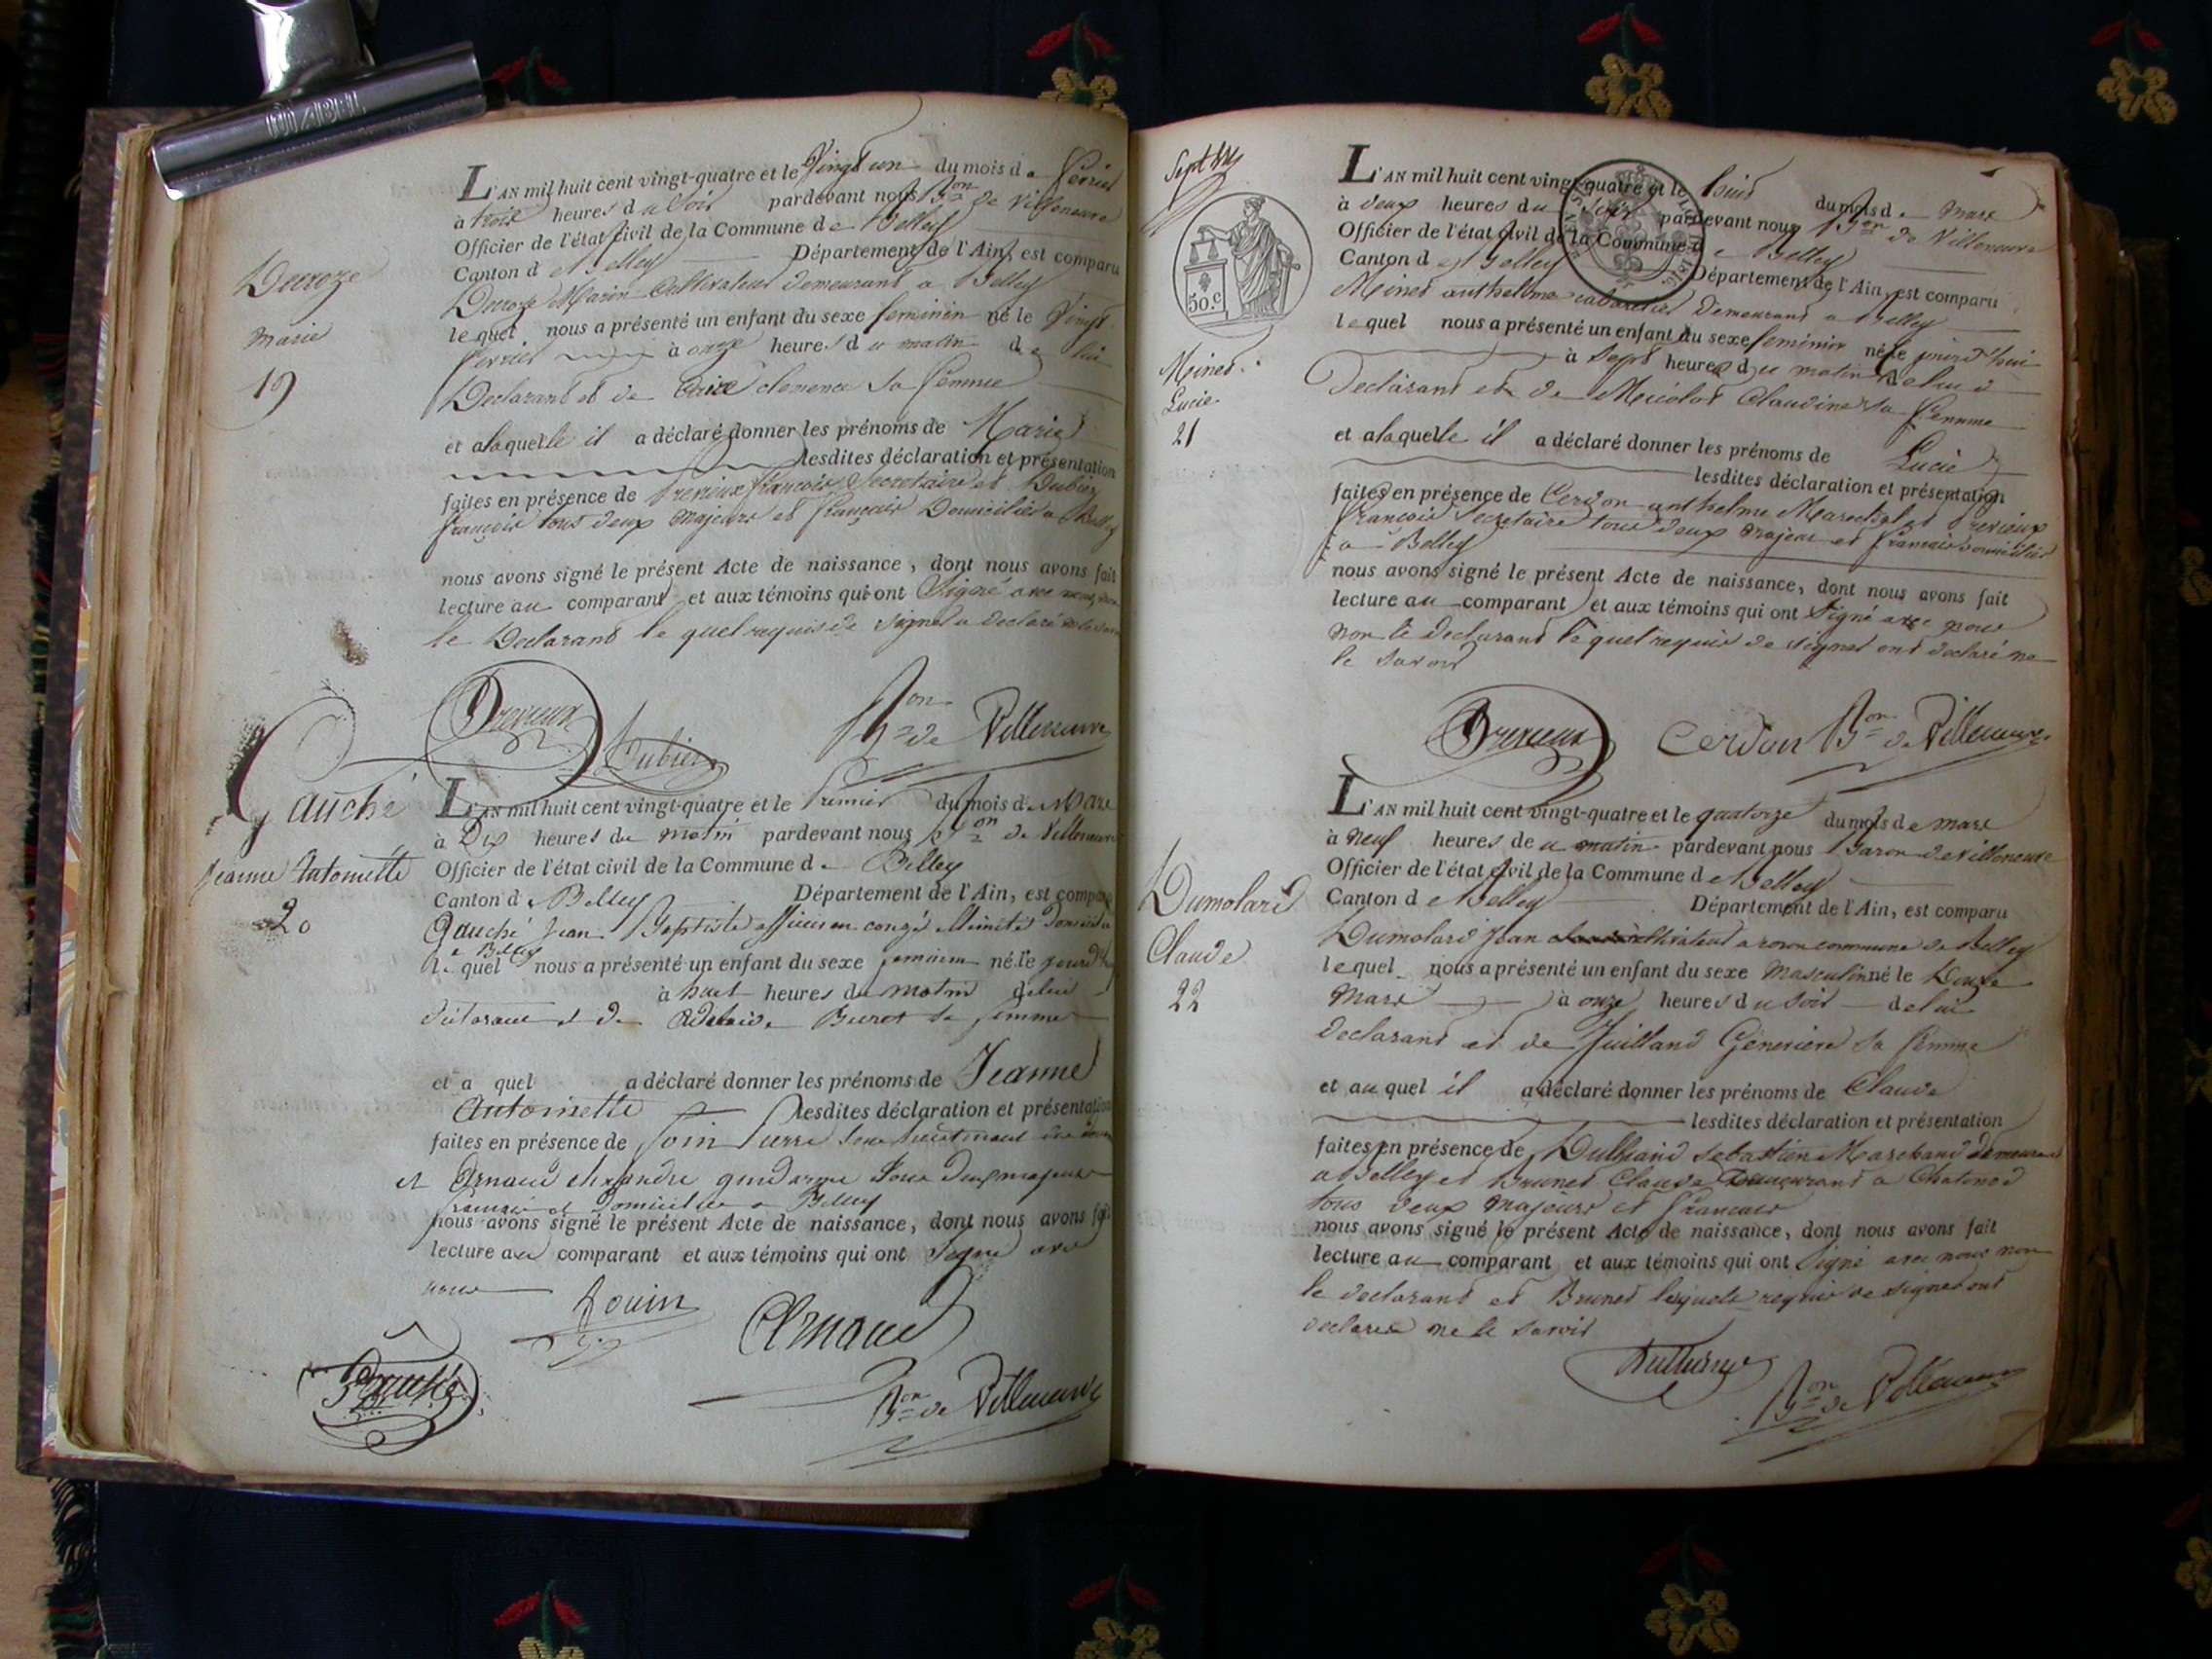 DIABEL
Derroze
Marie
19
L'AN mil huit cent vingt-quatre et le Vingt un du mois de fevrier
à trois heures du Soir pardevant nous Bon de Villeneuve
Officier de l'état civil de la Commune de Belley
Canton de Belley Département de l'Ain, est comparu
Derroze Marin Cultivateur demeurant a Belley
lequel nous a présenté un enfant du sexe feminin né le Vingt
fevrier à onze heures du matin de lui
Declarant et de clemence sa femme
et a laquelle il a déclaré donner les prénoms de Marie
lesdites déclaration et présentation
faites en présence de Previeux françois Secretaire et Dubier
françois tous deux majeurs et français Domiciliés a Belley
nous avons signé le présent Acte de naissance, dont nous avons fait
lecture au comparant et aux témoins qui ont Signé avec nous non
le Declarant le quel requis de signer a declaré ne le savoir
Previeux Dubier Bon de Villeneuve
Gauché
Jeanne Antoinette
20
L'AN mil huit cent vingt-quatre et le Premier du mois de Mars
à Dix heures du matin pardevant nous Bon de Villeneuve
Officier de l'état civil de la Commune de Belley
Canton de Belley Département de l'Ain, est comparu
Gauché Jean Baptiste officier en congé illimité domicilié
a Belley
lequel nous a présenté un enfant du sexe feminin né le jourd'hui
à huit heures du matin de lui
déclarant et de Adelaide Buret sa femme
et a quel a déclaré donner les prénoms de Jeanne
Antoinette lesdites déclaration et présentation
faites en présence de Pierre sous lieutenant
et Arnaud alexandre gendarme tous deux majeurs
francais et Domiciliés a Belley
nous avons signé le présent Acte de naissance, dont nous avons fait
lecture au comparant et aux témoins qui ont Signé avec
nous
Arnaud
Gauché
Bon de Villeneuve
50.c
Meinet
Lucie
21
L'AN mil huit cent vingt-quatre et le huit du mois de Mars
à deux heures du Soir pardevant nous Bon de Villeneuve
Officier de l'état civil de la Commune de Belley
Canton de Belley Département de l'Ain, est comparu
Meinet anthelme cabaretier Demeurant a Belley
lequel nous a présenté un enfant du sexe feminin né le jourd'hui
à Sept heures du matin de lui
Declarant et de Micolot Claudine sa femme
et a laquelle il a déclaré donner les prénoms de Lucie
lesdites déclaration et présentation
faites en présence de Cerdon anthelme Marechal et Previeux
François Secretaire tous deux majeurs et français domiciliés
a Belley
nous avons signé le présent Acte de naissance, dont nous avons fait
lecture au comparant et aux témoins qui ont Signé avec nous
non le declarant le quel requis de signer ont declaré ne
le savoir
Previeux Cerdon Bon de Villeneuve
Dumolard
Claude
22
L'AN mil huit cent vingt-quatre et le quatorze du mois de mars
à neuf heures du matin pardevant nous Baron de Villeneuve
Officier de l'état civil de la Commune de Belley
Canton de Belley Département de l'Ain, est comparu
Dumolard Jean cultivateur a commune de Belley
lequel nous a présenté un enfant du sexe Masculin né le Douze
Mars à onze heures du soir de lui
declarant et de Juilland Genevieve sa femme
et au quel il a déclaré donner les prénoms de Claude
lesdites déclaration et présentation
faites en présence de Sebastien Marchand demeurant
a Belley et Brunet Claude Demeurant a Chatonod
tous deux majeurs et francais
nous avons signé le présent Acte de naissance, dont nous avons fait
lecture au comparant et aux témoins qui ont Signé avec nous non
le declarant et Brunet lesquels requis de signer ont
declaré ne le savoir
Bon de Villeneuve